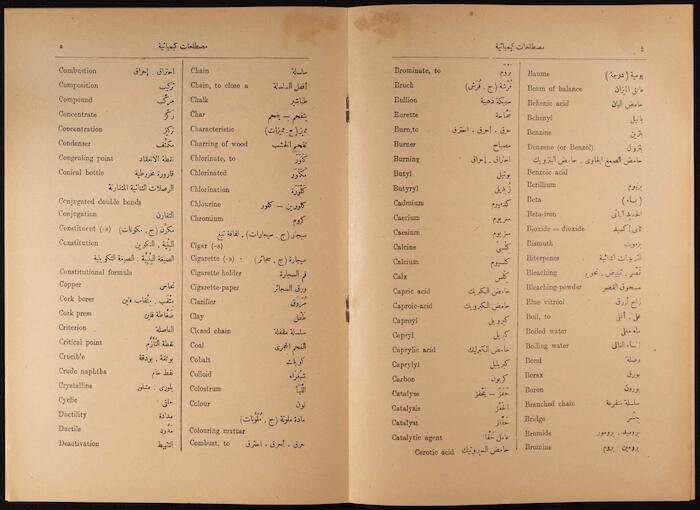 مصطلحات كيميائية ٤
Baume (درجة)
Beam of balance
Behenic acid حامض البان
Behenyl بانيل
Benzine بنزين
Benzene (or Benzol) بنزول
Benzoic acid حامض الصمغ الجاوى ، حامض البنزويك
Berillium
Beta
Beta-iron
Dioxide = dioxide ثانى أكسيد
Bismuth بزموت
Biterpenes
Bleaching قصر ، تبييض
Bleaching-powder مسحوق القصر
Blue vitreol زاج أزرق
Boil, to غلى ، أغلى
Boiled water ماء مغلى
Boiling water الماء الغالى
Bond وصلة
Borax بورق
Boron بورون
Branched chain سلسلة متفرعة
Bridge جسر
Bromide بروميد ، برومور
Bromine برومين بروم
Brominate, to بَروَم
Bruch فُرشة (ج . فُرَش)
Bullion سبيكة ذهبية
Burette سحّاحة
Burn,to حرق ، أحرق ، احترق
Burner مصباح
Burning احتراق ، إحراق
Butyl بوتيل
Butyryl زُبديل
Cadmium كدميوم
Caerium سريوم
Caesium سيزيوم
Calcine كلّس
Calcium كلسيوم
Calx كِلْس
Capric acid حامض الكبريك
Caproic-acid حامض الكبرويك
Caproyl كبرويل
Capryl كبريل
Caprylic acid حامض الكبرليك
Caprylyl كبريليل
Carbon كربون
Catalyse حَفَزَ — يَحْفِز
Catalysis الحَفْز
Catalyst حَفّاز
Catalytic agent عامل حَفّاز
Cerotic acid حامض السيروتيك
مصطلحات كيميائية ٥
Chain سلسلة
Chain, to close a أقفل السلسلة
Chalk طباشير
Char يتفحم — يفحم
Characteristic مميز (ج . مميزات)
Charring of wood تفحم الخشب
Chlorinate, to كَلْوَرَ
Chlorinated مُكَلْوَر
Chlorination كَلْوَرَة
Chlourine كلورين — كلور
Chromium كروم
Cigar (-s) سيجار (ج . سيجارات) ، لفافة تبغ
Cigarette (-s) سيجارة (ج . سجائر)
Cigarette-holder فم السجارة
Cigarette-paper ورق السجائر
Clarifier مُرَوِّق
Clay طَفْل
Closed chain سلسلة مقفلة
Coal الفحم الحجرى
Cobalt كوبالت
Colloid شِبْغِرَاء
Colostrum اللِّبَأ
Colour لون
Colouring mattar مادة ملوّنة (ج . مُلَوِّنات)
Combust, to حرق ، أحرق ، احترق
Combustion احتراق . إحراق
Composition تركيب
Compound مركّب
Concentrate ركّز
Concentration تركيز
Condenser مكثّف
Congealing point نقطة الانعقاد
Conical bottle قارورة مخروطية
Conjugated double bonds الوصلات الثنائية المتقارنة
Conjugation التقارن
Constituent (-s) مكوّن (ج . مكونات)
Constitution البِنْية ، التكوين
Constitutional formula الصيغة البِنْيِيّة ، الصيغة التكوينية
Copper نحاس
Cork borer مثقب ، مثقاب فلين
Cork press ضغّاطة فلين
Criterion الفاصلة
Critical point نقطة التأزّم
Crucible بوتقة ، بودقة
Crude naphtha نفط خام
Crystalline بلورى ، متبلور
Cyclic حلقى
Ductility
Ductile
Deactivation التثبيط